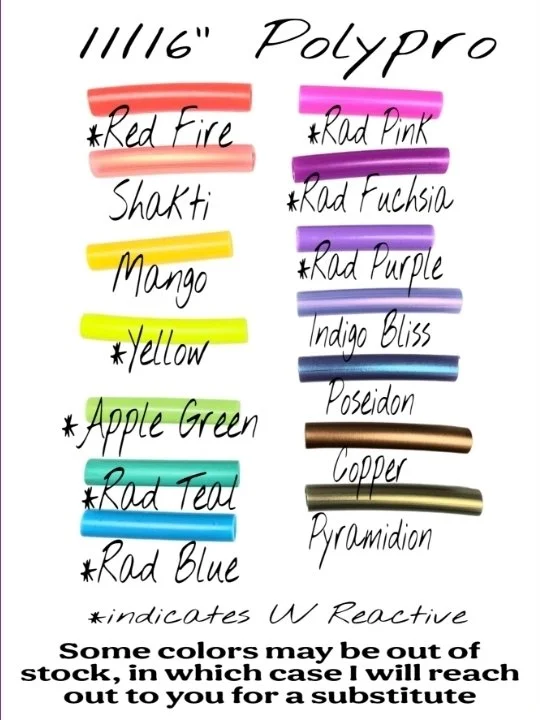 11/16" Polypro
*Red Fire
Shakti
Mango
*Yellow
*Apple Green
*Rad Teal
*Rad Blue
*Rad Pink
*Rad Fuchsia
*Rad Purple
Indigo Bliss
Poseidon
Copper
Pyramidion
*indicates UV Reactive
Some colors may be out of
stock, in which case I will reach
out to you for a substitute